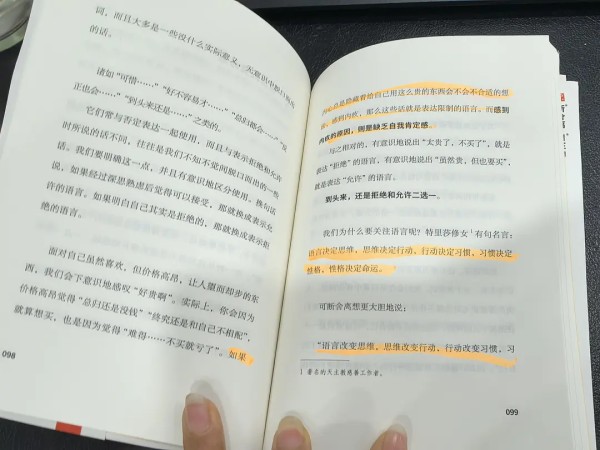 词，而且大多是一些没什么实际意义，无意识中脱口而出
的话。
诸如“可惜……”“好不容易才……”“总归都会……”“反
正也会……”“到头来还是……”之类的。
它们常与否定表达一起使用，而且与表示拒绝和允许
时所说的话不同，往往是我们不知不觉间脱口而出的一些
话。我们要明确这一点，并且有意识地区分使用。换句话
说，如果经过深思熟虑后觉得可以接受，那就换成表示允
许的语言。如果明白自己其实是拒绝的，那就换成表示拒
绝的语言。
面对自己虽然喜欢，但价格高昂、让人望而却步的东
西，我们会下意识地感叹“好贵啊”。实际上，你会因为
价格高昂觉得“总归还是没钱”“终究还是和自己不相配”，
就算想买，也是因为觉得“难得……不买就亏了”。如果
098
内心总是隐藏着给自己用这么贵的东西会不会不合适的想
法，感到内疚，那么这些话就是表达限制的语言。而感到
内疚的原因，则是缺乏自我肯定感。
与之相对的，有意识地说出“太贵了，不买了”，就是
表达“拒绝”的语言，有意识地说出“虽然贵，但也要买”，
就是表达“允许”的语言。
到头来，还是拒绝和允许二选一。
我们为什么要关注语言呢？特里莎修女¹有句名言：
语言决定思维，思维决定行动，行动决定习惯，习惯决定
性格，性格决定命运。
可断舍离想更大胆地说：
“语言改变思维，思维改变行动，行动改变习惯，习
1 著名的天主教慈善工作者。
099